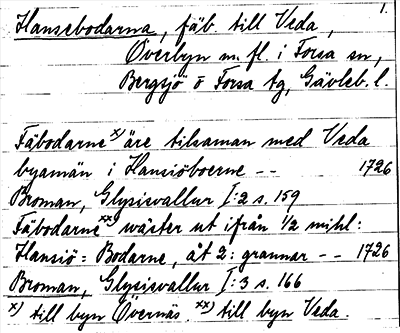 1.
Hansebodarna, fäb. till Veda,
Överbyn m. fl. i Forsa sn,
Bergsjö o Forsa tg, Gävleb. l.
Fäbodarne x) äre tilsaman med Veda
byamän i Hansiöboerne -- 1726
Broman, Glysisvallur I:2 s. 159
Fäbodarne xx) wäster ut ifrån 1/2 mihl:
Hansiö=Bodarne, åt 2: grannar -- 1726
Broman, Glysisvallur I:3 s. 166
x) till byn Övernäs. xx) till byn Veda.